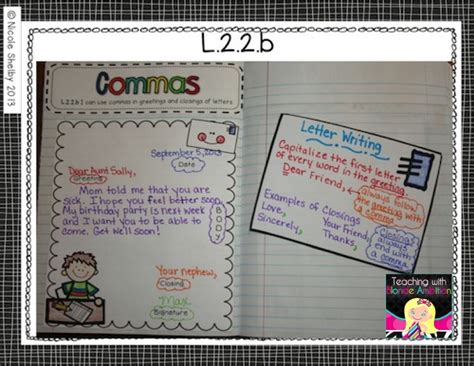 © Nicole Shelby 2013
L.2.2.b
Commas
L.2.2.b I can use commas in greetings and closings of letters
September 5, 2013
Date
Dear Aunt Sally,
Greeting
Mom told me that you are
sick. I hope you feel better soon.
My birthday party is next week
and I want you to be able to
come. Get well soon!
BODY
Your nephew,
Closing
Max
Signature
Letter Writing
Capitalize the first letter
of every word in the greeting.
Dear Friend,
always follow
the greeting with
a comma
Examples of Closings
Love, Your Friend,
Sincerely, Thanks,
Closings
always
end with
a comma
Teaching with
Blonde Ambition